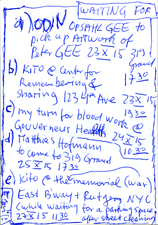 WAITING FOR
a) ODIN OPSAHL GEE to
pick up Artwork of
Peter GEE 23 x 15 319
Grand
b) Kito @ Center for 17 30
Remembering &
Sharing 123 4th Ave 23 x 15
19 30
c) my turn for blood work @
Gouverneur Health 24 x 15
10 30
d) Matthias Hofmann
to come to 319 Grand
25 x 15 17 30
e) Kito @ the memorial (war)
East B'way + Rutgers NYC
(while waiting for a parking space
27 x 15 11 30 after street cleaning